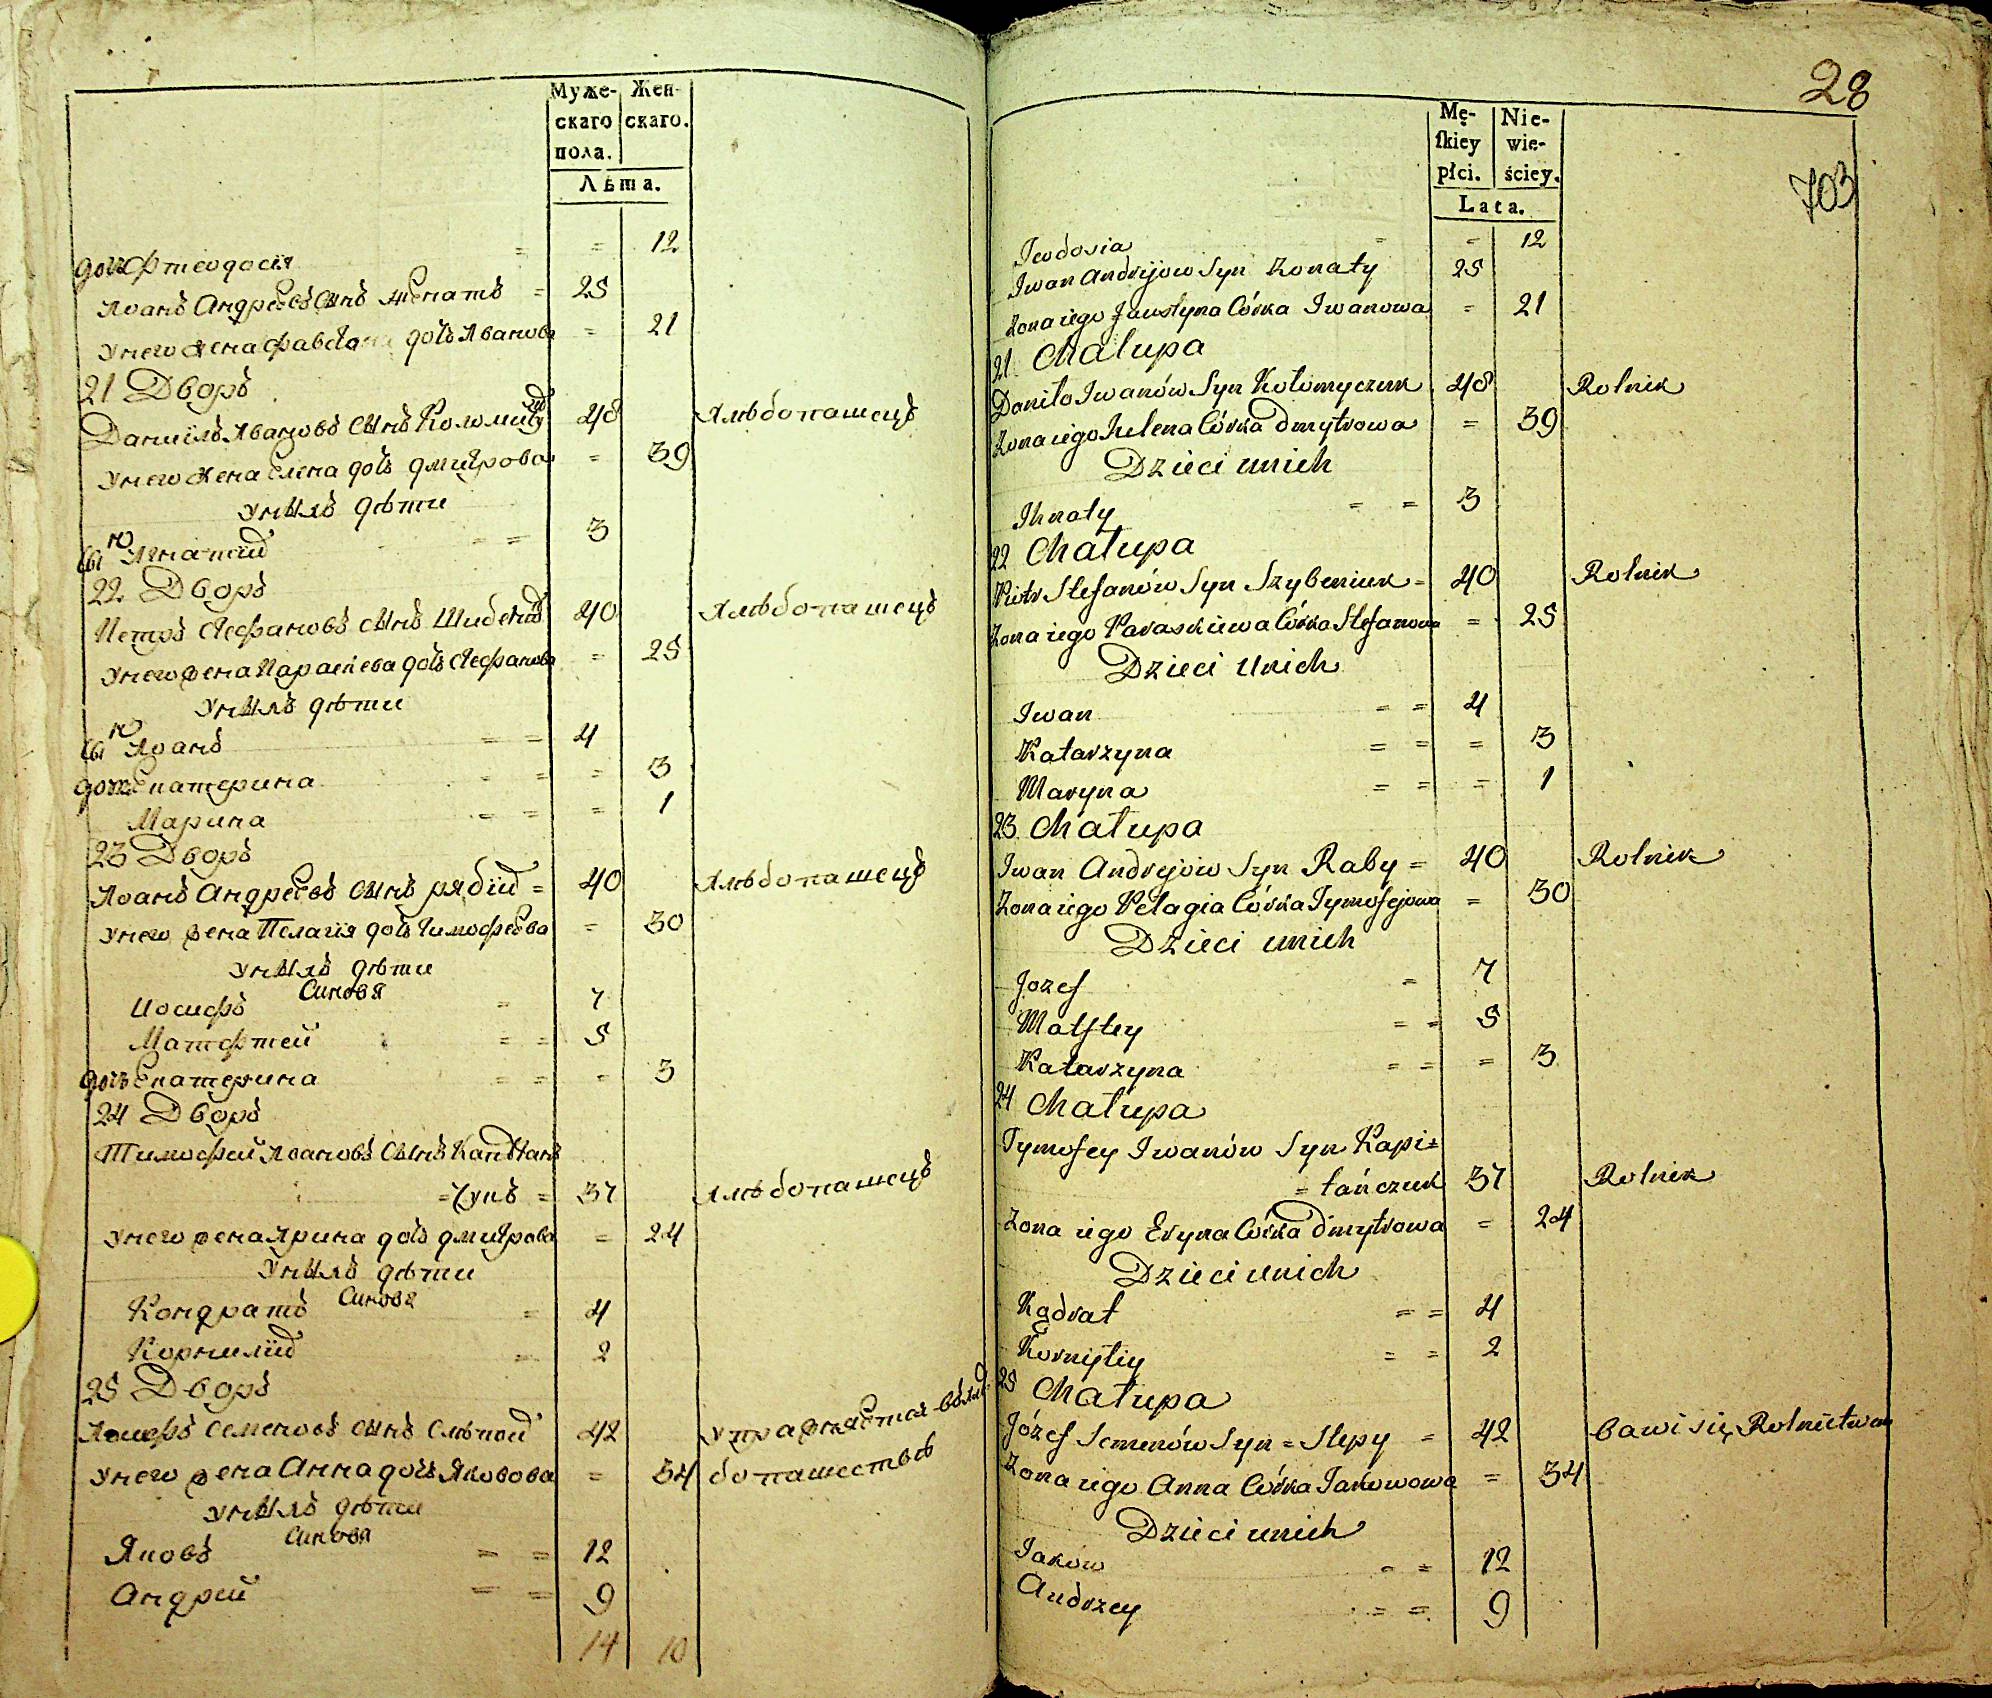 Муже- Жен-
скаго скаго.
пола.
Лѣта.
дочь Фтеодосія = = 12
Іоанъ Андреевъ Сынъ женатъ = 25
У него жена дочь Иванова = 21
21 Дворъ
Даніилъ Ивановъ Сынъ 48 Хлѣбопашецъ
У него жена Елена дочь Дмитрова = 39
У нихъ дѣти
Сынъ Игнатій = = 3
22 Дворъ
Петръ Стефановъ Сынъ 40 Хлѣбопашецъ
У него жена Параскева дочь Стефанова = 25
У нихъ дѣти
Сынъ Іоанъ = = 4
дочь Екатерина = = = 3
Марина = = = 1
23 Дворъ
Іоанъ Андреевъ Сынъ рябій = 40 Хлѣбопашецъ
У него жена Пелагія дочь Тимофеева = 30
У нихъ дѣти
Синовя
Иосифъ = 7
Матфтей = = 5
дочь Екатерина = = = 3
24 Дворъ
Тимофей Іоановъ Сынъ Капѣтан
=чукъ = 37 Хлѣбопашецъ
У него жена Ярина дочь Дмитрова = 24
У нихъ дѣти
Синовя
Кондратъ = 4
Корнилій = 2
25 Дворъ
Іосифъ Семеновъ Сынъ Слѣпой 42 упражняется въ хлѣ-
У него жена Анна дочь Яковова = 34 бопашествѣ
У нихъ дѣти
Синовя
Яковъ = = 12
Андрій = = 9
14 10
28
703
Mę- Nie-
ſkiey wie-
płci. ściey.
Lata.
Teodosia = = 12
Iwan Andryiow Syn Żonaty 25
Żona iego Faustyna Córka Iwanowa = 21
21 Chałupa
Daniło Iwanów Syn Kołomyczuk 48 Rolnik
Żona iego Julena Córka Dmytrowa = 39
Dzieci unich
Ihnaty = = 3
22 Chałupa
Piotr Stefanów Syn Szybeniuk = 40 Rolnik
Żona iego Paraskiewa Córka Stefanowa = 25
Dzieci Unich
Iwan = = 4
Katarzyna = = = 3
Maryna = = = 1
23 Chałupa
Iwan Andryiow Syn Raby = 40 Rolnik
Żona iego Pelagia Córka Tymofejowa = 30
Dzieci unich
Jozef = 7
Matftey = = 5
Katarzyna = = = 3
24 Chałupa
Tymofey Iwanów Syn Kapi=
=tańczuk 37 Rolnik
Żona iego Eryna Córka Dmytrowa = 24
Dzieci unich
Kądrat = = 4
Kornyłiy = = 2
25 Chałupa
Józef Semenów Syn = Slepy = 42 bawi się Rolnictwem
Żona iego Anna Córka Jakowowa = 34
Dzieci unich
Jaków = = 12
Andrzey = = 9